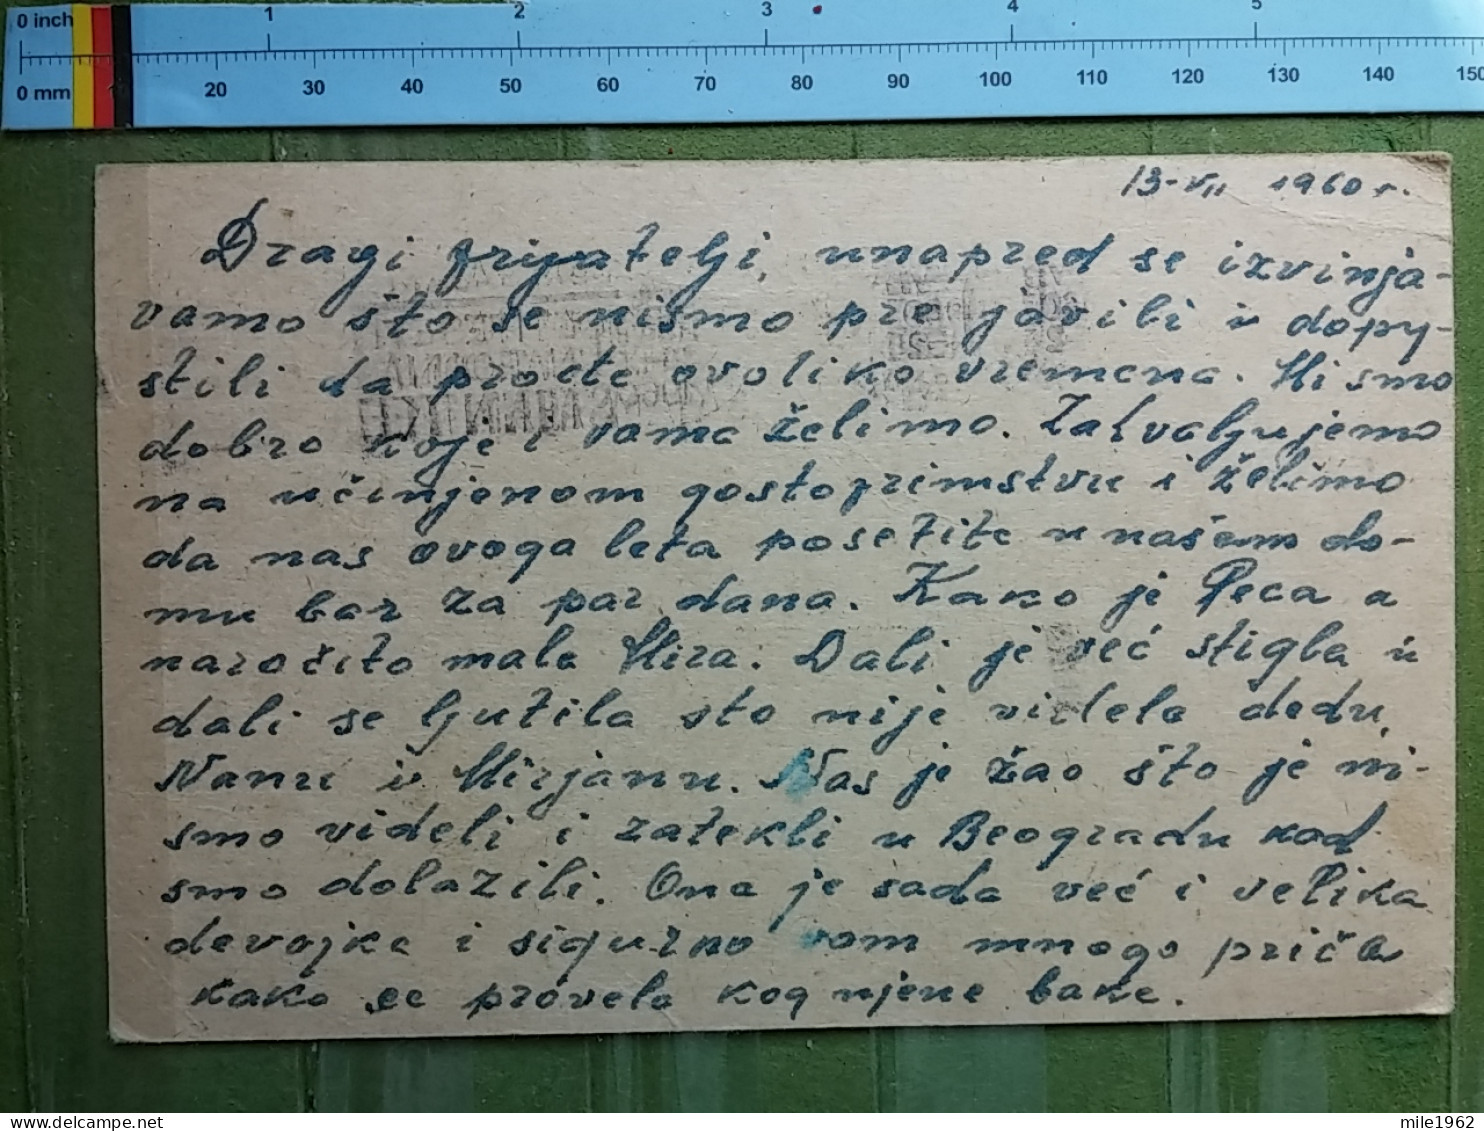 0 inch 1 2 3 4 5
0 mm 20 30 40 50 60 70 80 90 100 110 120 130 140 150
13-VII 1960 г.
Dragi prijatelji, unapred se izvinja-
vamo što se nismo pre javili i dopu-
stili da proete ovoliko vremena. Mi smo
dobro koje i vama želimo. Zahvaljujemo
na učinjenom gostoprimstvu i želimo
da nas ovoga leta posetite u našem do-
mu bar za par dana. Kako je Peca a
naročito mala Mira. Dali je već stigla i
dali se ljutila što nije videla dedu,
Nanu i Mirjanu. Nas je žao što je ni-
smo videli i zatekli u Beogradu kad
smo dolazili. Ona je sada već i velika
devojka i sigurno vam mnogo priča
kako se provela kog njene bake.
mile1962